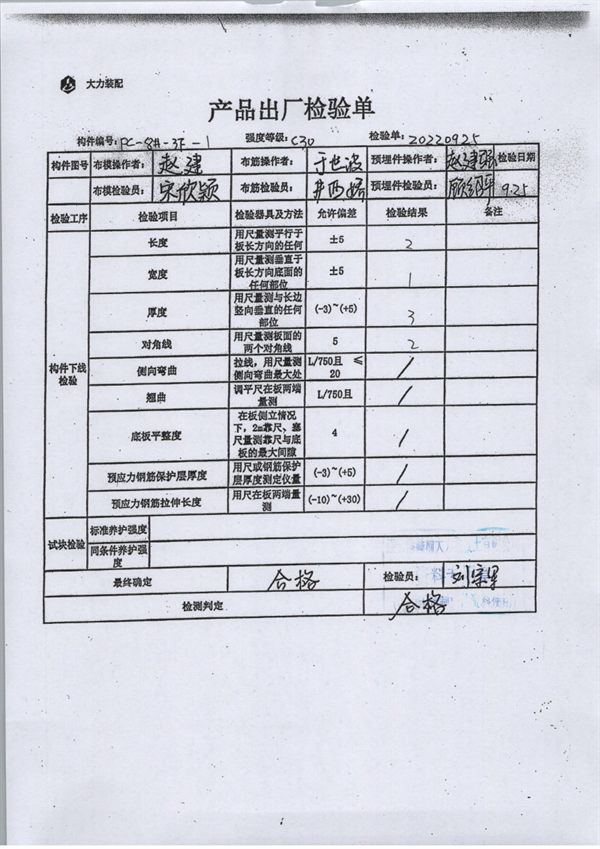 大力装配
产品出厂检验单
构件编号: PC-8#-3F-1 强度等级: C30 检验单: 20220925
构件图号 布模操作者: 赵建 布筋操作者: 于世波 预埋件操作者: 赵建强 检验日期
布模检验员: 宋欣颖 布筋检验员: 预埋件检验员: 9.25
检验工序 检验项目 检验器具及方法 允许偏差 检验结果 备注
构件下线检验
长度 用尺量测平行于板长方向的任何 ±5 2
宽度 用尺量测垂直于板长方向底面的任何部位 ±5 1
厚度 用尺量测与长边竖向垂直的任何部位 (-3)~(+5) 3
对角线 用尺量测板面的两个对角线 5 2
侧向弯曲 拉线,用尺量测侧向弯曲最大处 L/750且 ≤20 /
翘曲 调平尺在板两端量测 L/750且 /
底板平整度 在板侧立情况下,2m靠尺、塞尺量测靠尺与底板的最大间隙 4 /
预应力钢筋保护层厚度 用尺或钢筋保护层厚度测定仪量 (-3)~(+5) /
预应力钢筋拉伸长度 用尺在板两端量测 (-10)~(+30) /
试块检验 标准养护强度
同条件养护强度
最终确定 合格 检验员:
检测判定 合格